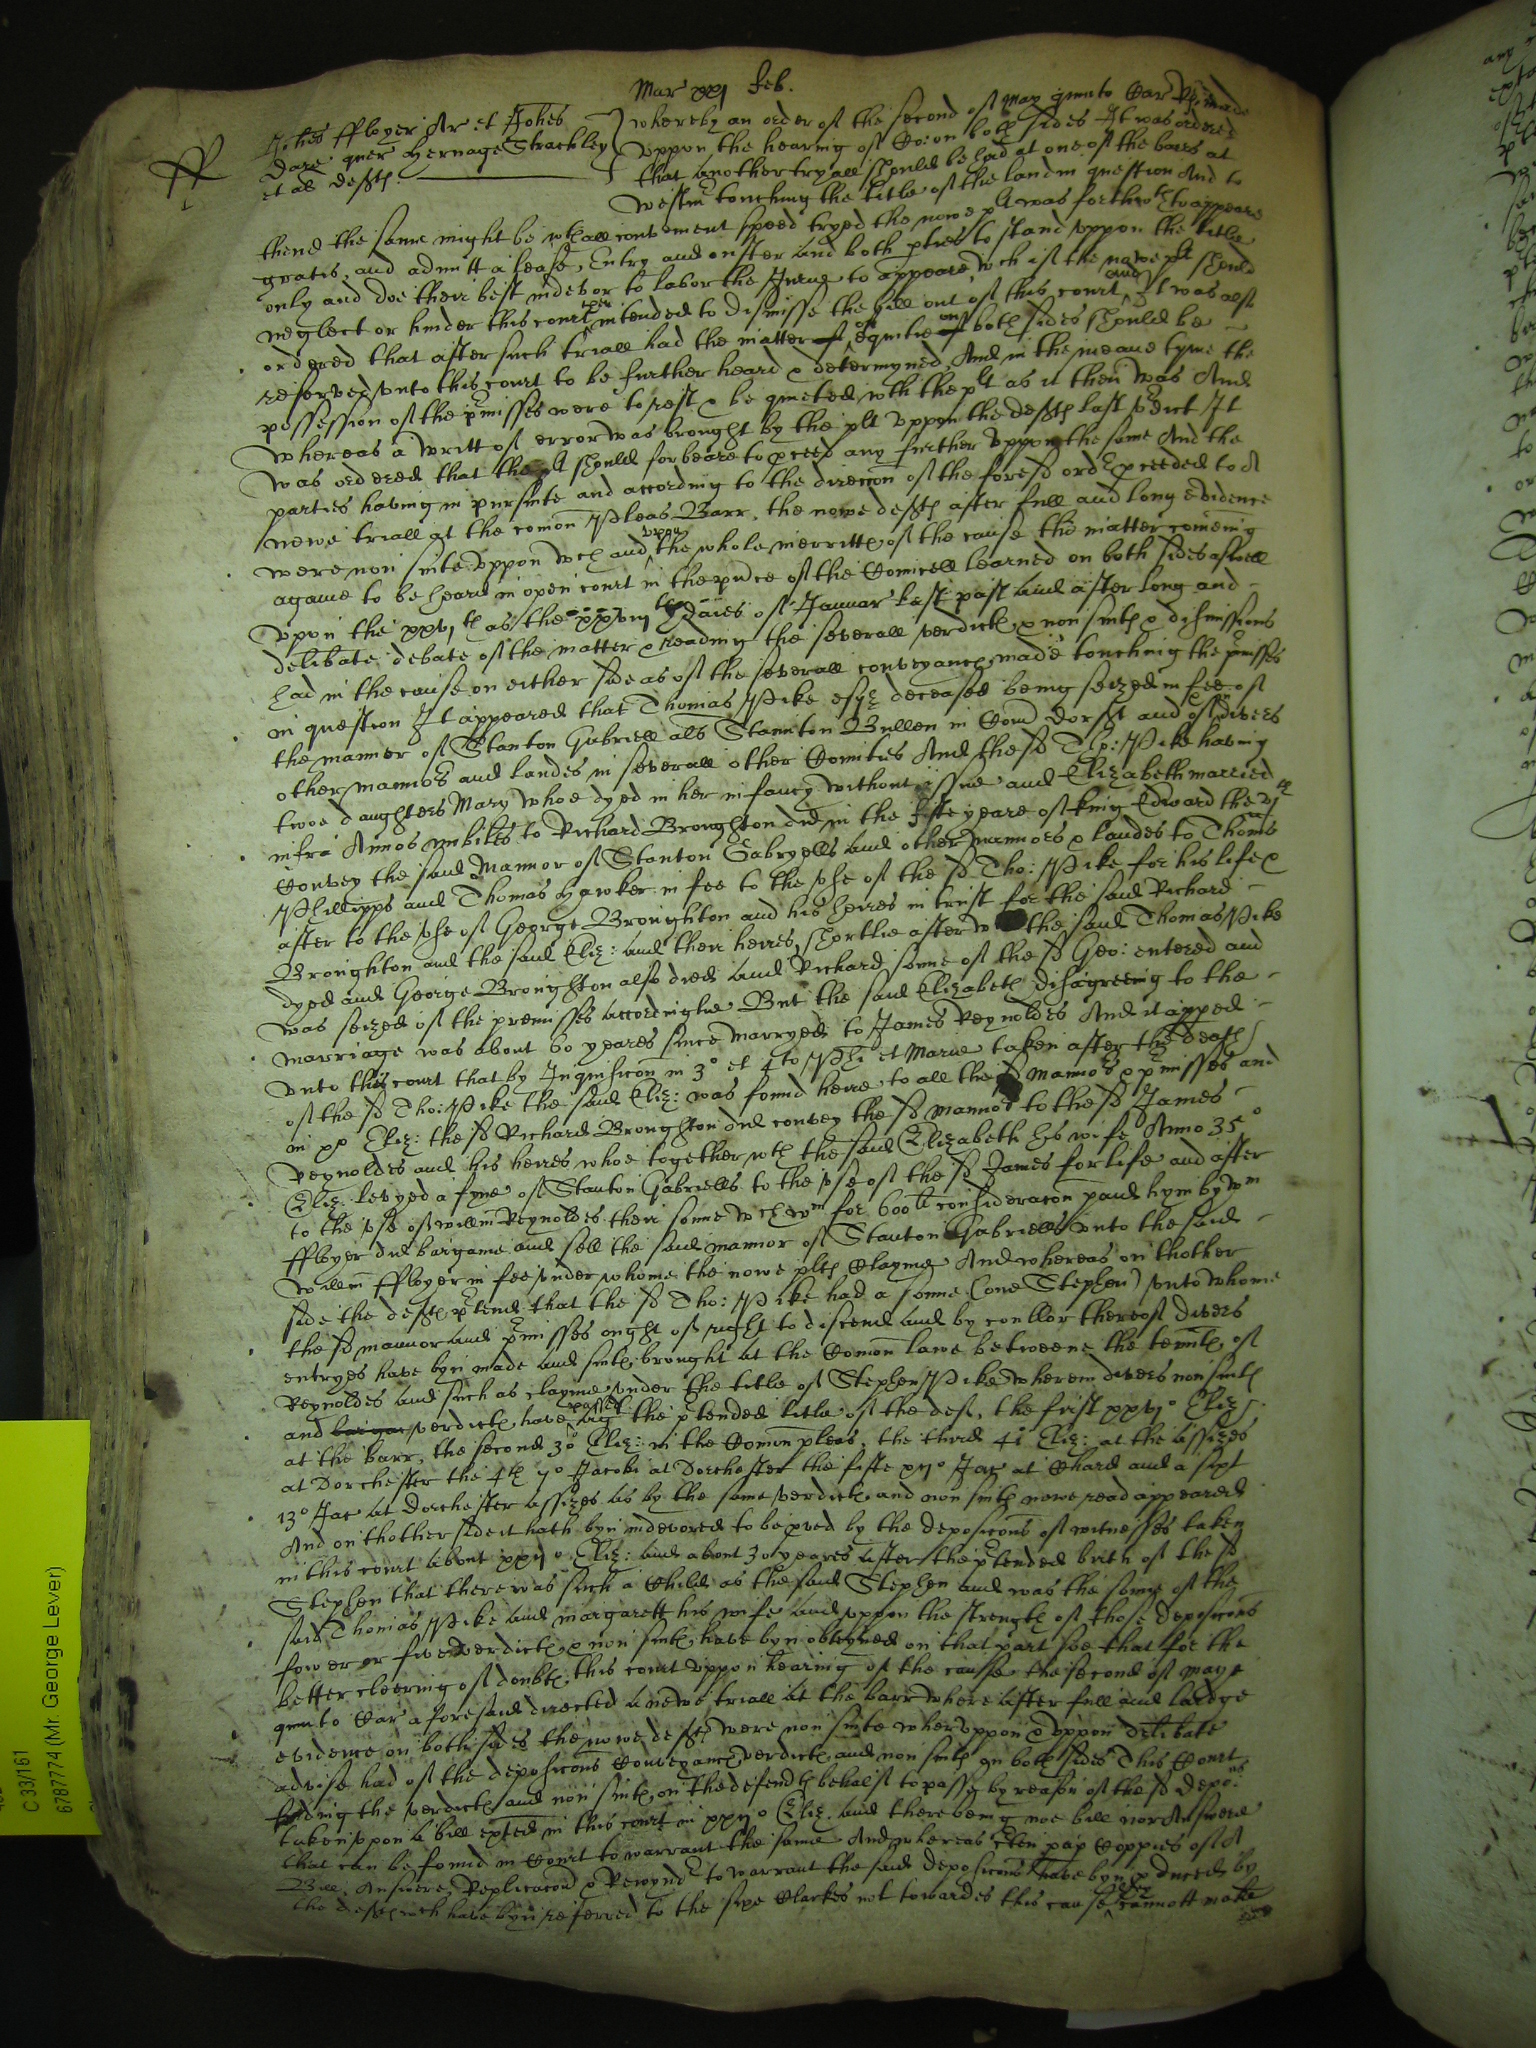 Mar xxj feb.
ff
Johes ffloyer Ar et Johes
Dare quer Hernage Strachley
et al Defftes
whereby an order of the second of May quinto Car Rs made
uppon the hearing of Co: on both sides It was ordered
that another tryall should be had at one of the barrs at
Westmr touching the title of the land in question And to
thend the same might be wth all convenient speed tryed the nowe plt was forthwth to appeare
gratis, and admitt a lease, Entry and ouster and both pties to stand uppon the title
only and doe their best indevor to labor the Jurye to appeare, wch if the nowe plt should
neglect or hinder this court then intended to dismisse the bill out of this court, and It was also
ordered that after such triall had the matter of equitie on both sides should be
reserved unto this court to be further heard & determyned, And in the meane tyme the
possession of the pmisses were to rest & be quieted wth the plt as it then was And
whereas a writt of error was brought by the plt uppon the defftes last vdict It
was ordered that the plt should forbeare to pceed any further uppon the same And the
parties having in pursuite and according to the direccon of the foresd ordr pceeded to A
newe triall at the comon Pleas Barr, the nowe defftes after full and long evidence
were non suite uppon wch and upon the whole merritts of the cause the matter comeing
againe to be heard in open court in the pnce of the Councell learned on both sides aswell
upon the xxvjth as the xxviijth daies of Januar last past and after long and
delibate debate of the matter & reading the severall verdicts & non suits & dismissions
had in the cause on either side as of the severall conveyances made touching the pmisses
in question It appeared that Thomas Pike esqr deceased being seized in fee of
the mannor of Stanton Gabriell als Staunton Bullen in Com Dorsst and of divers
other mannors and landes in severall other Counties And the sd Tho: Pike having
twoe daughters Mary whoe dyed in her infancy without issue and Elizabeth married
infra Annos nubiles to Richard Broughton did in the fiste yeare of king Edward the vjth
Convey the said Mannor of Stanton Gabryells and other mannors & landes to Thoms
Phillipps and Thomas Hawker in fee to the use of the sd Tho: Pike for his life &
after to the use of George Broughton and his heires in trust for the said Richard
Broughton and the said Eliz: and their heires, shortlie after the said Thomas Pike
dyed and George Broughton also died and Richard sonne of the sd Geo: entered and
was seized of the premisses accordinglie But the said Elizabeth disagreeing to the
marriage was about 60 yeares since marryed to James Reynoldes And it apped
unto this court that by Inquisicon in 3o et 4to Phi et Marie taken after the death
of the sd Tho: Pike the said Eliz: was found heire to all the sd mannors & pmisses and
in xxo Eliz: the sd Richard Broughton did convey the sd mannor to the sd James
Reynoldes and his heires whoe together wth the said Elizabeth his wife Anno 35o
Eliz: levyed a fyne of Stanton Gabriells to the use of the sd James for life and after
to the use of willm Reynoldes their sonne wch Wm for 600li consideracon paid hym by Wm
ffloyer did bargaine and sell the said mannor of Stanton Gabriells unto the said
Willm ffloyer in fee under whome the nowe plts clayme And whereas on thother
side the defftes ptend that the sd Tho: Pike had a sonne (one Stephen) unto whome
the sd mannor and pmisses ought of right to discend and by coullor thereof divers
entryes have byn made and suits brought at the Comon lawe betweene the tennts of
Reynoldes and such as clayme under the title of Stephen Pike wherein divers non suits
and bargai verdicts have passed agt the ptended title of the deft, the first xxvjo Eliz
at the barr, the second 30o Eliz: in the Comon pleas, the third 41o Eliz: at the assizes
at Dorchester the 4th 7o Jacobi at Dorchester the fiste xijo Jac at Chard and a sixt
13o Jac at Dorchester assizes as by the same verdicts and non suits nowe read appeared
And on thother side it hath byn indevored to be pved by the deposicons of witnesses taken
in this court about xxijo Eliz: and about 30 yeares after the ptended birth of the sd
Stephen that there was such a Child as the said Stephen and was the sonne of the
said Thomas Pike and margarett his wife and uppon the strength of those deposicons
fower or five verdicts & non suits have byn obteyned on that part soe that for the
better cleering of doubts this court uppon hearing of the causse the second of maye
quinto Car aforesaid directed a newe triall at the barr where after full and lardge
evidence on both sides the nowe defftes were non suite wheruppon & uppon delibate
advise had of the deposicons Conveyances verdicts and non suits on both sides This Court
finding the verdicts and non suits on the defendts behalf to passe by reason of the sd depons
taken upon a bill exted in this court in xxijo Eliz. and there being noe bill nor Answere
that can be found in Court to warrant the same And whereas cten pap Coppies of A
Bill, Answere, Replicacon & Rejoynd to warrant the said deposicons have byn pduced by
the defftes wch have byn referred to the sixe Clarkes not towardes this cause, cannott make
C 33/161
6787774 (Mr. George Lever)